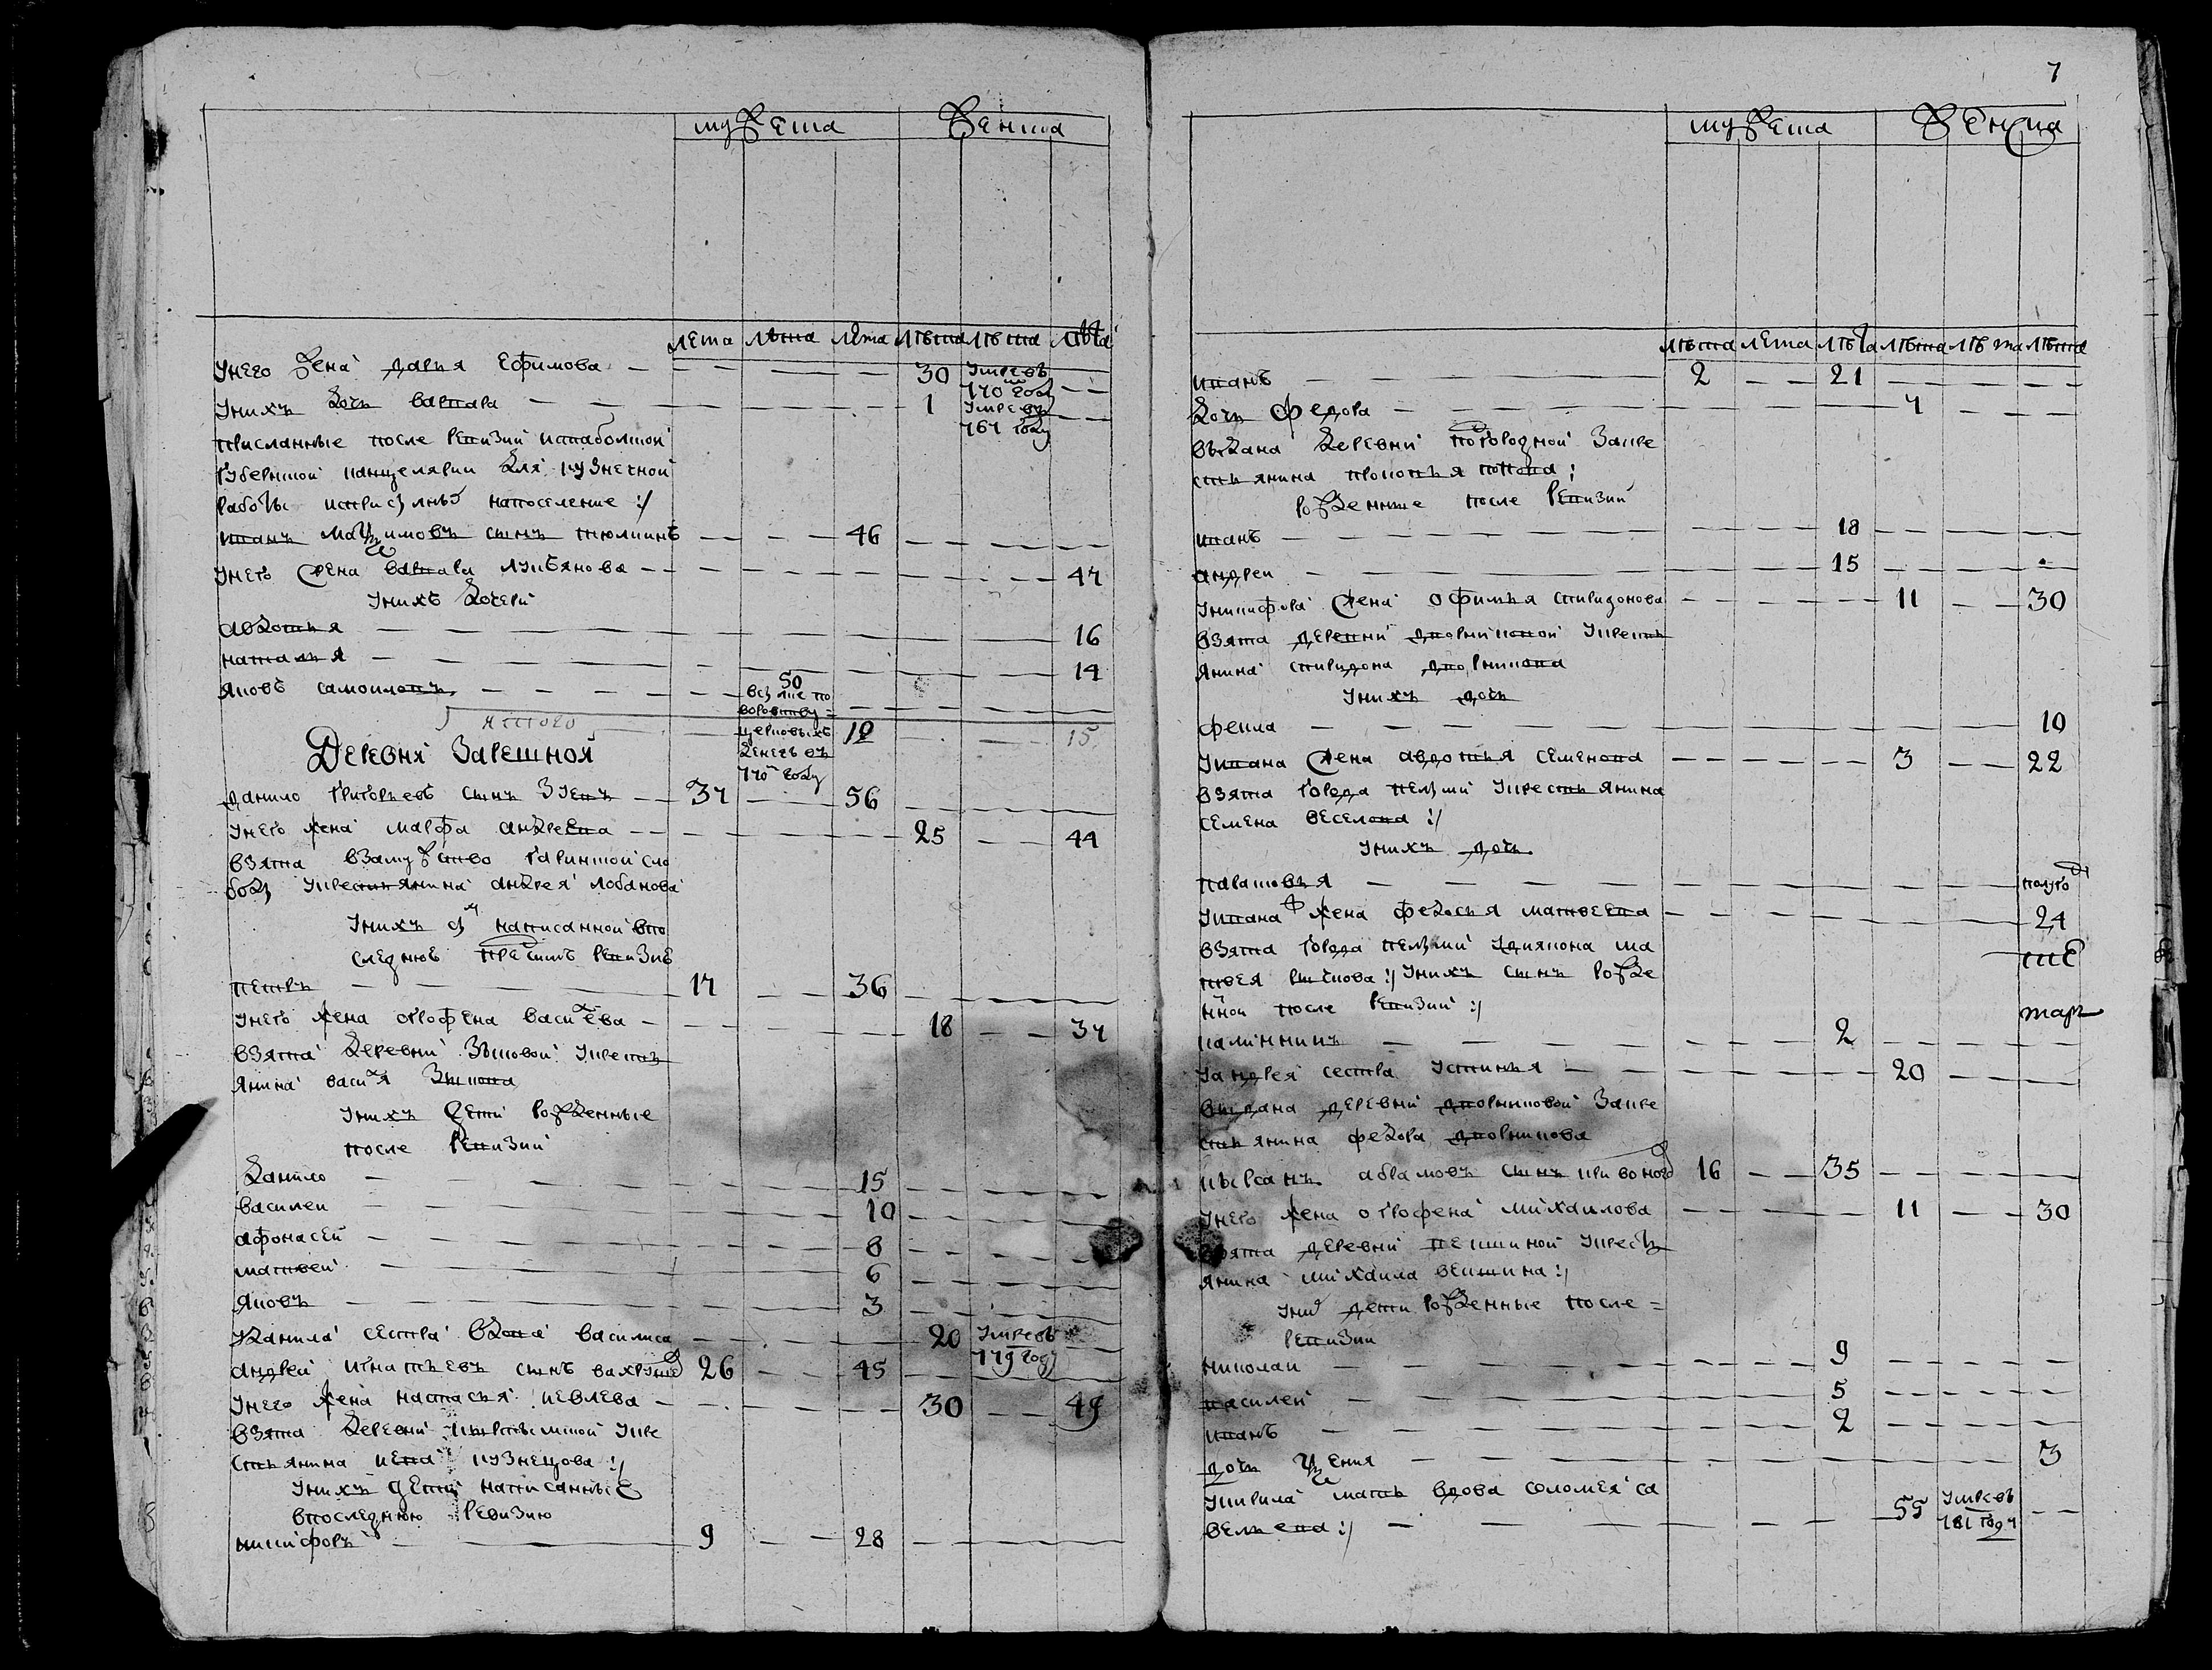 мужеска женска
лета лѣта лета лѣта лѣта лѣта
унего жена дарья ефимова — 30 умре въ 770м году
унихъ дочь варвара — 1 умре въ 767 году
присланные после ревизии истоболской
губернской канцелярии для кузнечной
работы исприсылныхъ напоселение :/
иванъ максимовъ сынъ тюлкинъ — 46
унего жена варвара лукьянова — 47
унихъ дочери
авдотья — 16
наталья — 14
яковъ самоиловъ — 50
церковныхъ
денегъ въ
770м году
итого 10 15
Деревня Заречной
данило григорьевъ сынъ зуевъ — 37 — 56
унего жена марфа андреева — 25 — 44
взята взамужство гаринской сло
боды укрестьянина андрея лобанова
унихъ сынъ написанной впо
следнюю пред симъ ревизию
петръ — 17 — 36
унего жена огрофена васильева — 18 — 37
взята деревни зыковой укресть
янина василья зыкова
унихъ дети рожденные
после ревизии
данило — 15
василеи — 10
афонасеи — 8
матвеи — 6
яковъ — 3
уданила сестра вдова василиса — 20 умре въ 779 году
андреи игнатьевъ сынъ вахрушев 26 — 45
унего жена настасья иевлева — 30 — 49
взята деревни укре
стьянина иева кузнецова :/
унихъ дети написанные
впоследнюю ревизию
никифоръ — 9 — 28
7
мужеска женска
лѣта лета лѣта лѣта лѣта лѣта
иванъ — 2 — 21
дочь федора — 7
выдана деревни загородной закре
стьянина прокопья попова :
рожденные после ревизии
иванъ — 18
андреи — 15
уникифора жена офимья спиридонова — 11 — 30
взята деревни дворниковой укресть
янина спиридона дворникова
унихъ дочь
фекла — 10
уивана жена авдотья семенова — 3 — 22
взята города пелыми укрестьянина
семена веселова :/
унихъ дочь
парасковья — полугод
уивана жена федосья матвеева — 24
взята города пелыми удиякона ма
твея :/ унихъ сынъ рожде
нной после ревизии :/
калинникъ — 2
уандрея сестра устинья — 20
выдана деревни дворниковой закре
стьянина федора дворникова
кырсанъ абрамовъ сынъ кривоногов 16 — 35
унего жена огрофена михаилова — 11 — 30
взята деревни векшиной укресть
янина михаила векшина :/
унихъ дети рожденные после =
ревизии
николаи — 9
василеи — 5
иванъ — 2
дочь ксения — 3
укирила мать вдова соломея са
вельева :/ — 55 умре въ 181 году